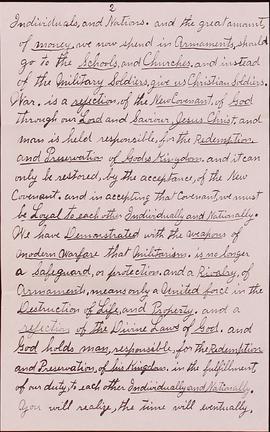 2
Individuals, and Nations. and the great amount,
of money, we now spend in Armaments, should
go to the Schools, and Churches. and instead
of the Military Soldiers, give us Christian Soldiers.
War. is a rejection, of the New Covenant. of God
through our Lord and Savior, Jesus Christ, and
man is held responsible, for the Redemption,
and Preservation of God's Kingdom. and it can
only be restored, by the acceptance, of the New
Covenant. and in accepting that Covenant, we must
be Loyal to each other Individually and Nationally.
We have Demonstrated with the weapons of
modern warfare that Militarism. is no longer
a safeguard, or protection. and a Rivalry, of
Armaments, means only a United force in the
Destruction of Life, and Property. and a
rejection of the Divine Laws of God. and
God holds man, responsible, for the Redemption
and Preservation, of his Kingdom. in the fulfillment,
of our duty, to each other Individually and Nationally.
You will realize, the time will eventually.